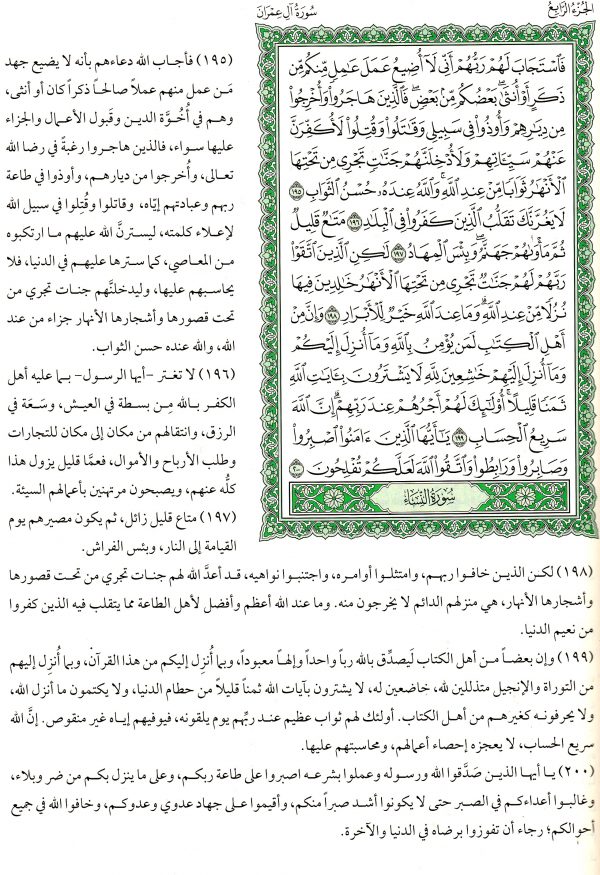 الجزء الرابع
سورة آل عمران
فَاسْتَجَابَ لَهُمْ رَبُّهُمْ أَنِّي لَا أُضِيعُ عَمَلَ عَامِلٍ مِّنكُم مِّن
ذَكَرٍ أَوْ أُنثَىٰ بَعْضُكُم مِّنۢ بَعْضٍ فَالَّذِينَ هَاجَرُوا وَأُخْرِجُوا
مِن دِيَارِهِمْ وَأُوذُوا فِي سَبِيلِي وَقَاتَلُوا وَقُتِلُوا لَأُكَفِّرَنَّ
عَنْهُمْ سَيِّئَاتِهِمْ وَلَأُدْخِلَنَّهُمْ جَنَّاتٍ تَجْرِي مِن تَحْتِهَا
الْأَنْهَارُ ثَوَابًا مِّنْ عِندِ اللَّهِ وَاللَّهُ عِندَهُ حُسْنُ الثَّوَابِ ١٩٥
لَا يَغُرَّنَّكَ تَقَلُّبُ الَّذِينَ كَفَرُوا فِي الْبِلَادِ ١٩٦ مَتَاعٌ قَلِيلٌ
ثُمَّ مَأْوَاهُمْ جَهَنَّمُ وَبِئْسَ الْمِهَادُ ١٩٧ لَٰكِنِ الَّذِينَ اتَّقَوْا
رَبَّهُمْ لَهُمْ جَنَّاتٌ تَجْرِي مِن تَحْتِهَا الْأَنْهَارُ خَالِدِينَ فِيهَا
نُزُلًا مِّنْ عِندِ اللَّهِ وَمَا عِندَ اللَّهِ خَيْرٌ لِّلْأَبْرَارِ ١٩٨ وَإِنَّ مِنْ
أَهْلِ الْكِتَابِ لَمَن يُؤْمِنُ بِاللَّهِ وَمَا أُنزِلَ إِلَيْكُمْ
وَمَا أُنزِلَ إِلَيْهِمْ خَاشِعِينَ لِلَّهِ لَا يَشْتَرُونَ بِآيَاتِ اللَّهِ
ثَمَنًا قَلِيلًا أُولَٰئِكَ لَهُمْ أَجْرُهُمْ عِندَ رَبِّهِمْ إِنَّ اللَّهَ
سَرِيعُ الْحِسَابِ ١٩٩ يَا أَيُّهَا الَّذِينَ ءَامَنُوا اصْبِرُوا
وَصَابِرُوا وَرَابِطُوا وَاتَّقُوا اللَّهَ لَعَلَّكُمْ تُفْلِحُونَ ٢٠٠
سورة النساء
(١٩٥) فأجاب الله دعاءهم بأنه لا يضيع جهد
مَن عمل منهم عملاً صالحاً ذكراً كان أو أنثى،
وهم في أُخُوَّة الدين وقَبول الأعمال والجزاء
عليها سواء، فالذين هاجروا رغبةً في رضا الله
تعالى، وأُخرجوا من ديارهم، وأوذوا في طاعة
ربهم وعبادتهم إيّاه، وقاتلوا وقُتِلوا في سبيل الله
لإعلاء كلمته، ليسترنَّ الله عليهم ما ارتكبوه
من المعاصي، كما سترها عليهم في الدنيا، فلا
يحاسبهم عليها، وليدخلنَّهم جنات تجري من
تحت قصورها وأشجارها الأنهار جزاء من عند
الله، والله عنده حسن الثواب.
(١٩٦) لا تغتر -أيها الرسول- بما عليه أهل
الكفر بالله مِن بسطة في العيش، وسَعَة في
الرزق، وانتقالهم من مكان إلى مكان للتجارات
وطلب الأرباح والأموال، فعمَّا قليل يزول هذا
كلُّه عنهم، ويصبحون مرتهنين بأعمالهم السيئة.
(١٩٧) متاع قليل زائل، ثم يكون مصيرهم يوم
القيامة إلى النار، وبئس الفراش.
(١٩٨) لكن الذين خافوا ربهم، وامتثلوا أوامره، واجتنبوا نواهيه، قد أعدَّ الله لهم جنات تجري من تحت قصورها
وأشجارها الأنهار، هي منزلهم الدائم لا يخرجون منه. وما عند الله أعظم وأفضل لأهل الطاعة مما يتقلب فيه الذين كفروا
من نعيم الدنيا.
(١٩٩) وإن بعضاً من أهل الكتاب لَيصدِّق بالله رباً واحداً وإلهاً معبوداً، وبما أُنزِل إليكم من هذا القرآن، وبما أُنزِل إليهم
من التوراة والإنجيل متذللين لله، خاضعين له، لا يشترون بآيات الله ثمناً قليلاً من حطام الدنيا، ولا يكتمون ما أنزل الله،
ولا يحرفونه كغيرهم من أهل الكتاب. أولئك لهم ثواب عظيم عند ربِّهم يوم يلقونه، فيوفيهم إياه غير منقوص. إنَّ الله
سريع الحساب، لا يعجزه إحصاء أعمالهم، ومحاسبتهم عليها.
(٢٠٠) يا أيها الذين صَدَّقوا الله ورسوله وعملوا بشرعه اصبروا على طاعة ربكم، وعلى ما ينزل بكم من ضر وبلاء،
وغالبوا أعداءكم في الصبر حتى لا يكونوا أشد صبراً منكم، وأقيموا على جهاد عدوي وعدوكم، وخافوا الله في جميع
أحوالكم؛ رجاء أن تفوزوا برضاه في الدنيا والآخرة.